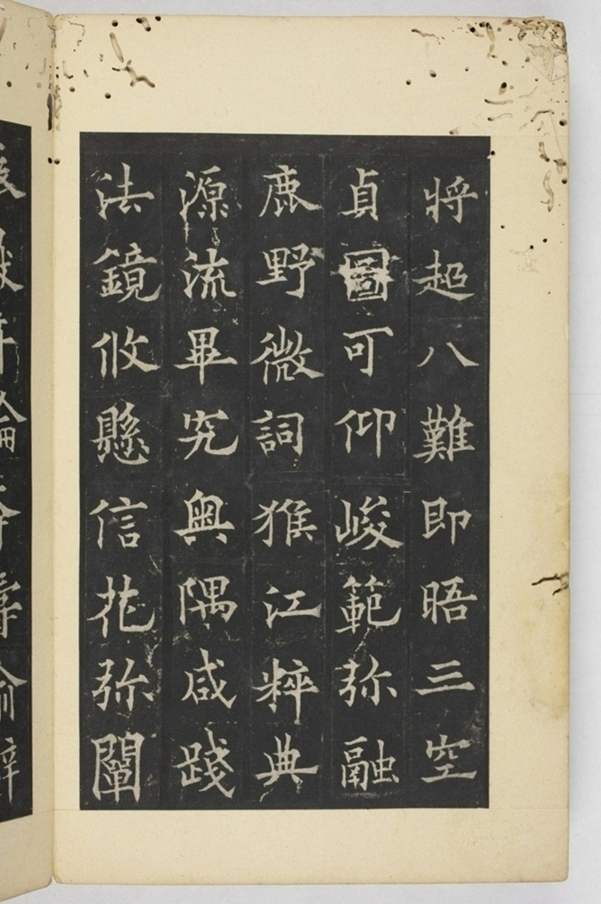 將超八難即晤三空
貞圖可仰峻範弥融
鹿野微詞猴江粹典
源流畢究奥隅咸踐
法鏡攸懸信花弥闡